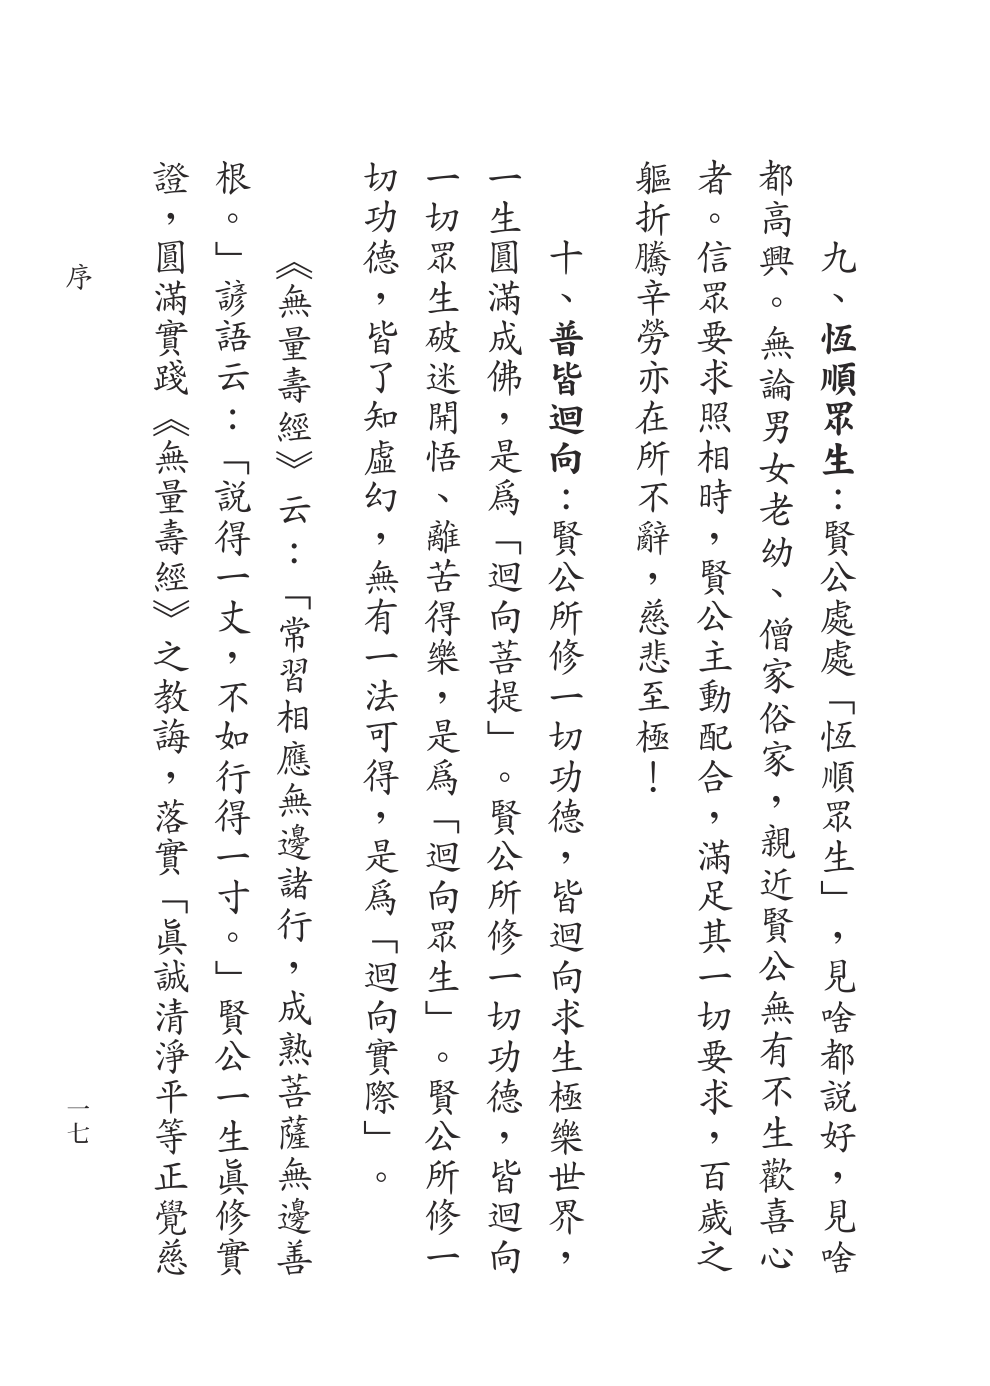 九、恆順眾生：賢公處處「恆順眾生」，見啥都説好，見啥
都高興。無論男女老幼、僧家俗家，親近賢公無有不生歡喜心
者。信眾要求照相時，賢公主動配合，滿足其一切要求，百歲之
軀折騰辛勞亦在所不辭，慈悲至極！
十、普皆迴向：賢公所修一切功德，皆迴向求生極樂世界，
一生圓滿成佛，是爲「迴向菩提」。賢公所修一切功德，皆迴向
一切眾生破迷開悟、離苦得樂，是爲「迴向眾生」。賢公所修一
切功德，皆了知虛幻，無有一法可得，是爲「迴向實際」。
《無量壽經》云：「常習相應無邊諸行，成熟菩薩無邊善
根。」諺語云：「説得一丈，不如行得一寸。」賢公一生眞修實
證，圓滿實踐《無量壽經》之教誨，落實「眞誠清淨平等正覺慈
序
一七